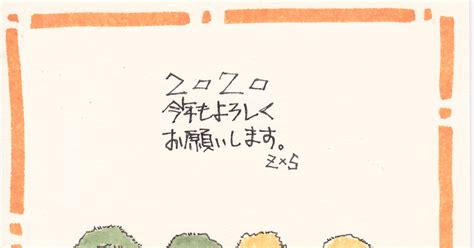 2020
今年もよろしく
お願いします。
Z×S